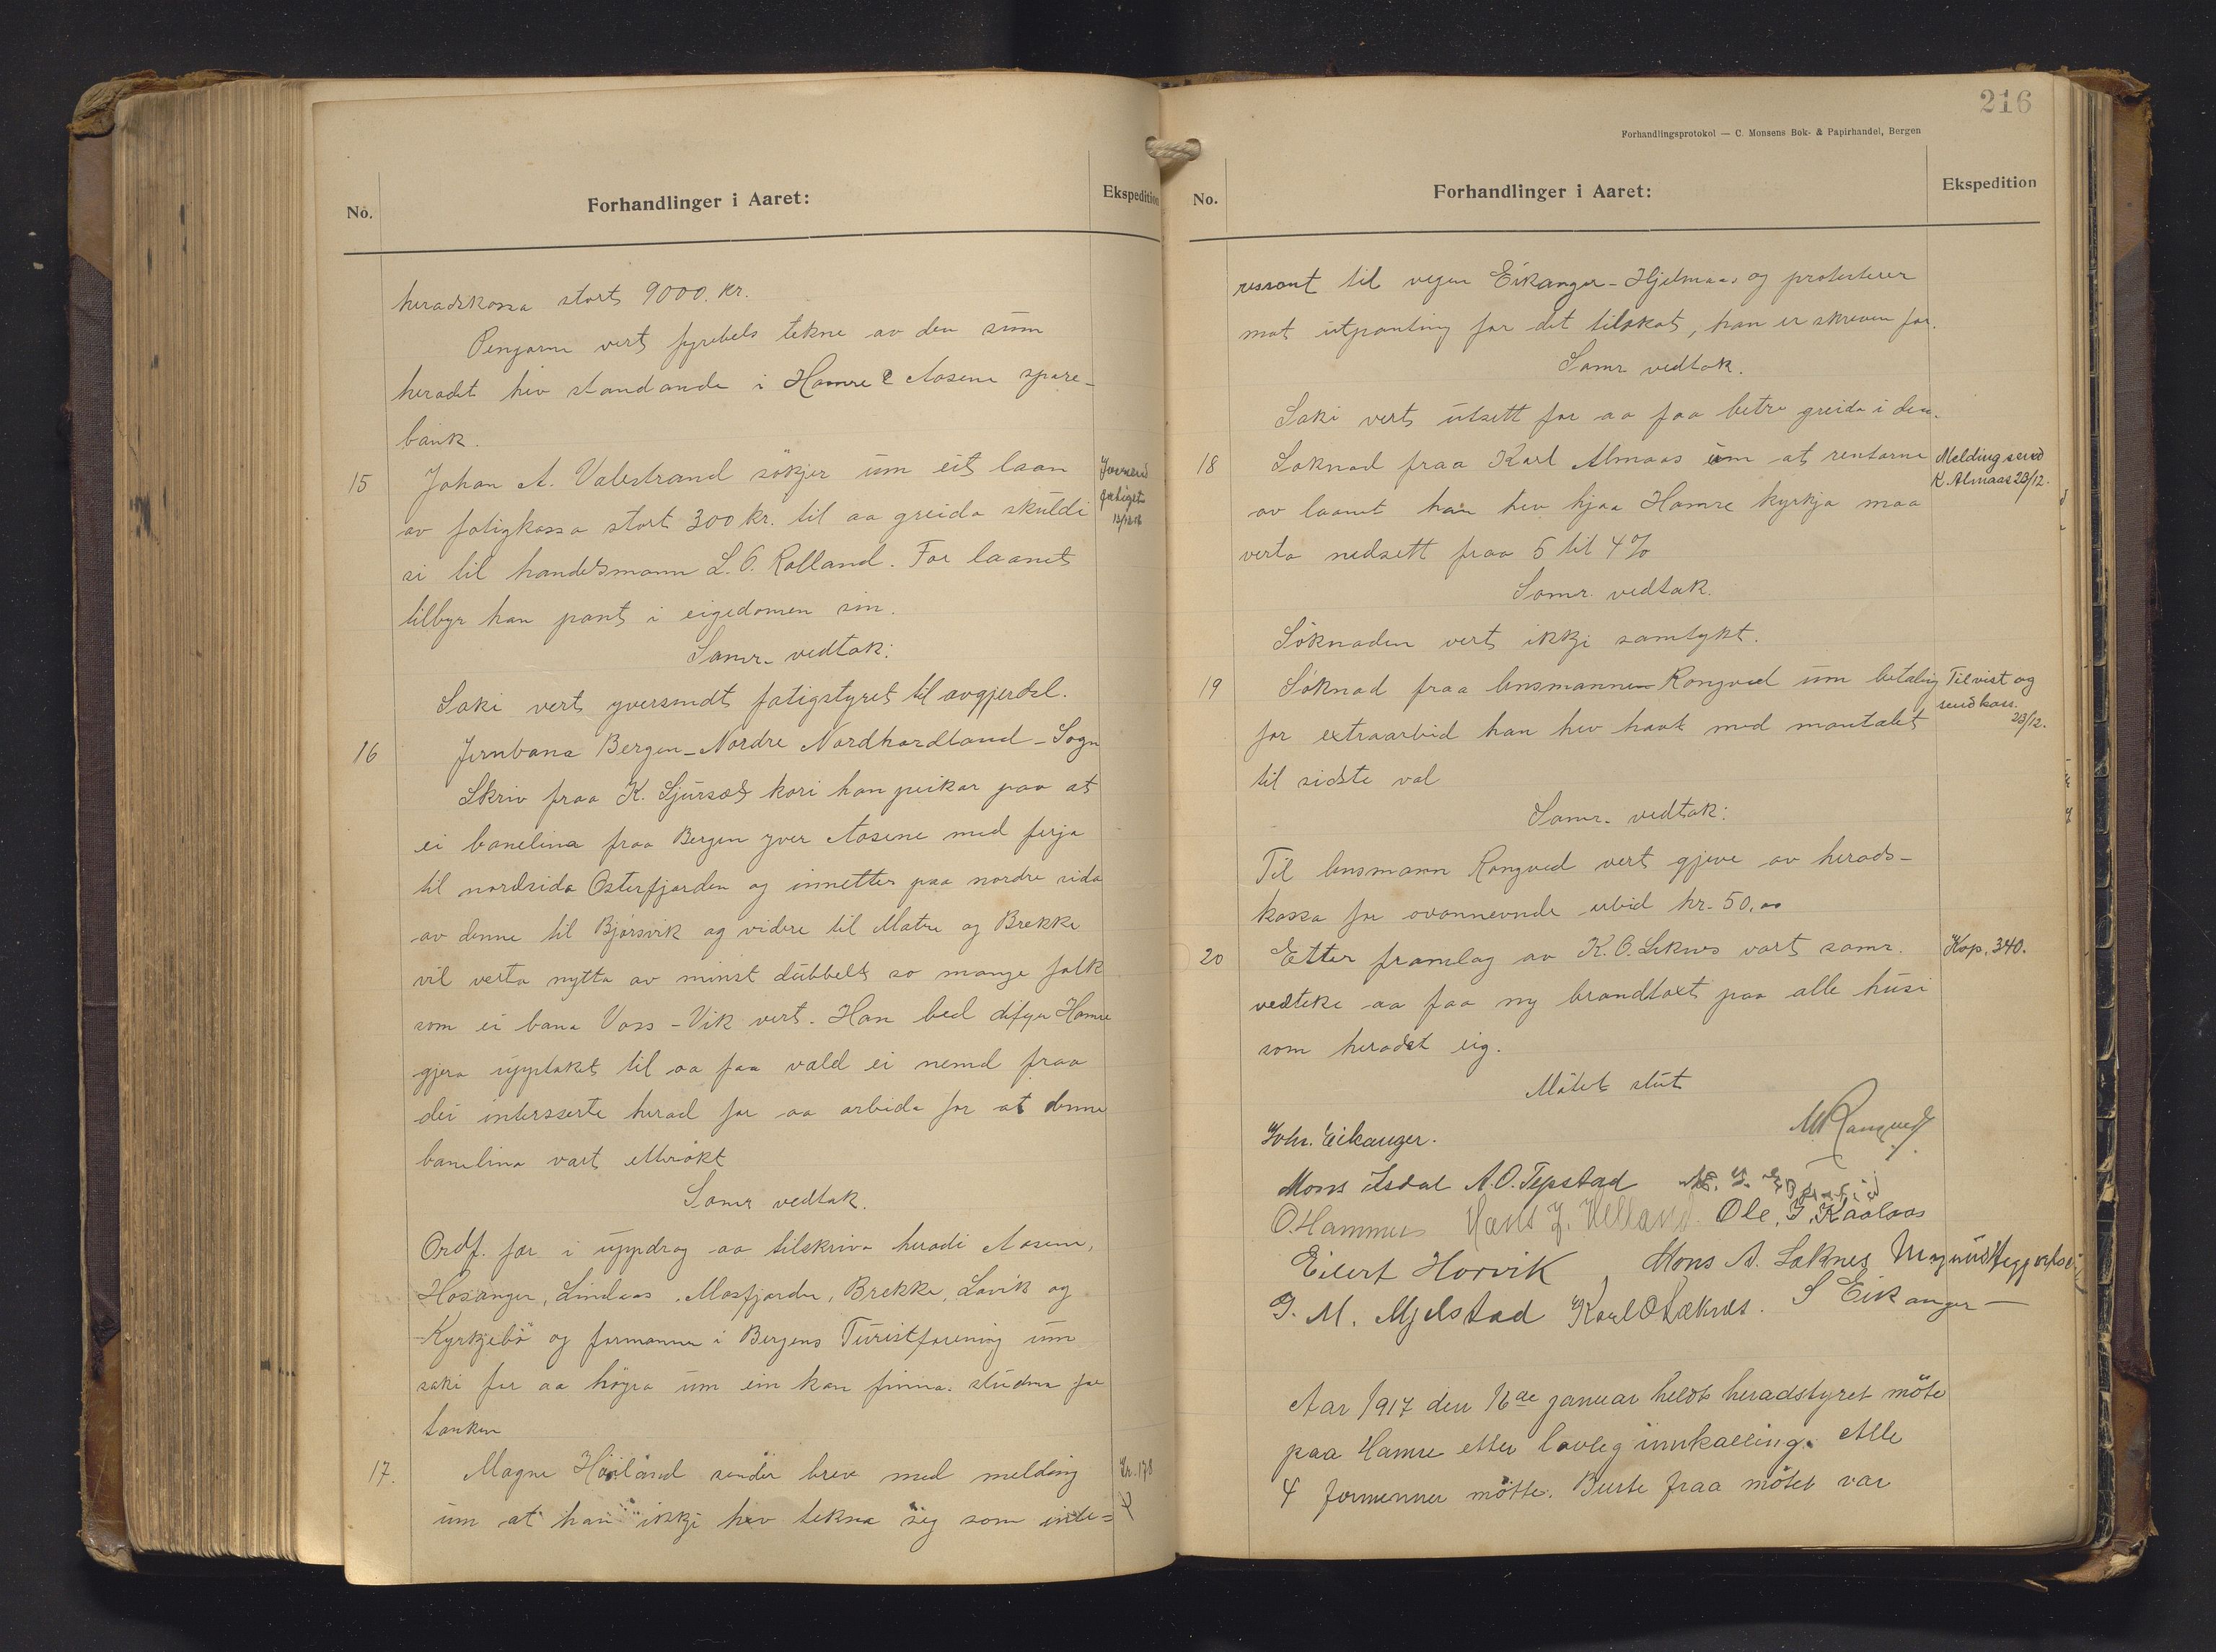 No.
Forhandlinger i Aaret:
Ekspedition
heradskassa stort 9000. kr.
Pengarne vert fyrebels tekne av den sum
heradet hev standande i Hamre & Aasene spare-
bank.
15 Johan A. Valestrand søkjer um eit laan
av fatigkassa stort 300 kr. til aa greida skuldi
si til handelsmann L. O. Rolland. For laanet
tilbyr han pant i eigedomen sin.
Samr. vedtak:
Saki vert yversendt fatigstyret til avgjerdsl.
16 Jernbana Bergen - Nordre Nordhordland - Sogn
Skriv fraa K. Sjursæt kori han peikar paa at
ei banelina fraa Bergen yver Aasene med ferja
til nordsida Osterfjorden og innetter paa nordre sida
av denne til Bjørsvik og videre til Matre og Brekke
vil verta nytta av minst dubbelt so mange folk
som ei bana Voss - Vik vert. Han bed difyr Hamre
gjera upptaket til aa faa vald ei nemd fraa
dei intersserte herad for aa arbida for at denne
banelina vart ettersøkt
Samr vedtak.
Ordf. fær i uppdrag aa tilskriva heradi Aasene,
Hosanger, Lindaas, Masfjorden, Brekke, Lavik og
Kyrkjebø og formannen i Bergens Turistforening um
saki for aa høyra um ein kan finna studna for
tanken
17. Magne Høiland sender brev med melding
Kr. 178
um at han ikkji hev tekna seg som inte=
216
Forhandlingsprotokol — C. Monsens Bok- & Papirhandel, Bergen
No.
Forhandlinger i Aaret:
Ekspedition
ressent til vegen Eikanger - Hjelmaas og protesterer
mot utpanting for det tilskot, han er skreven for.
Samr vedtak.
Saki vert utsett for aa faa betre greida i den.
18 Søknad fraa Karl Almaas um at rentorne
Melding send
K. Almaas 23/12.
av laanet han hev hjaa Hamre kyrkja maa
verta nedsett fraa 5 til 4%
Samr. vedtak.
Søknaden vert ikkji samtykt.
19 Søknad fraa lensmannen Rongved um betaling
Tilvist og
send kass.
23/12.
for extraarbeid han hev havt med mantalet
til sidste val
Samr. vedtak:
Til lensmann Rongved vert gjeve av herads-
kassa for ovannevnde arbid kr. 50,00
20 Etter framlag av K. O. Leknes vart samr.
Kop. 340.
vedteke aa faa ny brandtaxt paa alle husi
som heradet eig.
Møtet slut
Joh. Eikanger.
M Rongved
Mons Isdal A. O. Tepstad
O. Hammer Hans J. Helland. Ole, J. Kaalaas
Eilert Horvik, Mons A. Loknes
J. M. Mjelstad Karl O Løknes. S Eikanger
Aar 1917 den 16de januar heldt heradstyret møte
paa Hamre etter lovleg innkalling. Alle
4 formenner møtte. Burte fraa møtet var